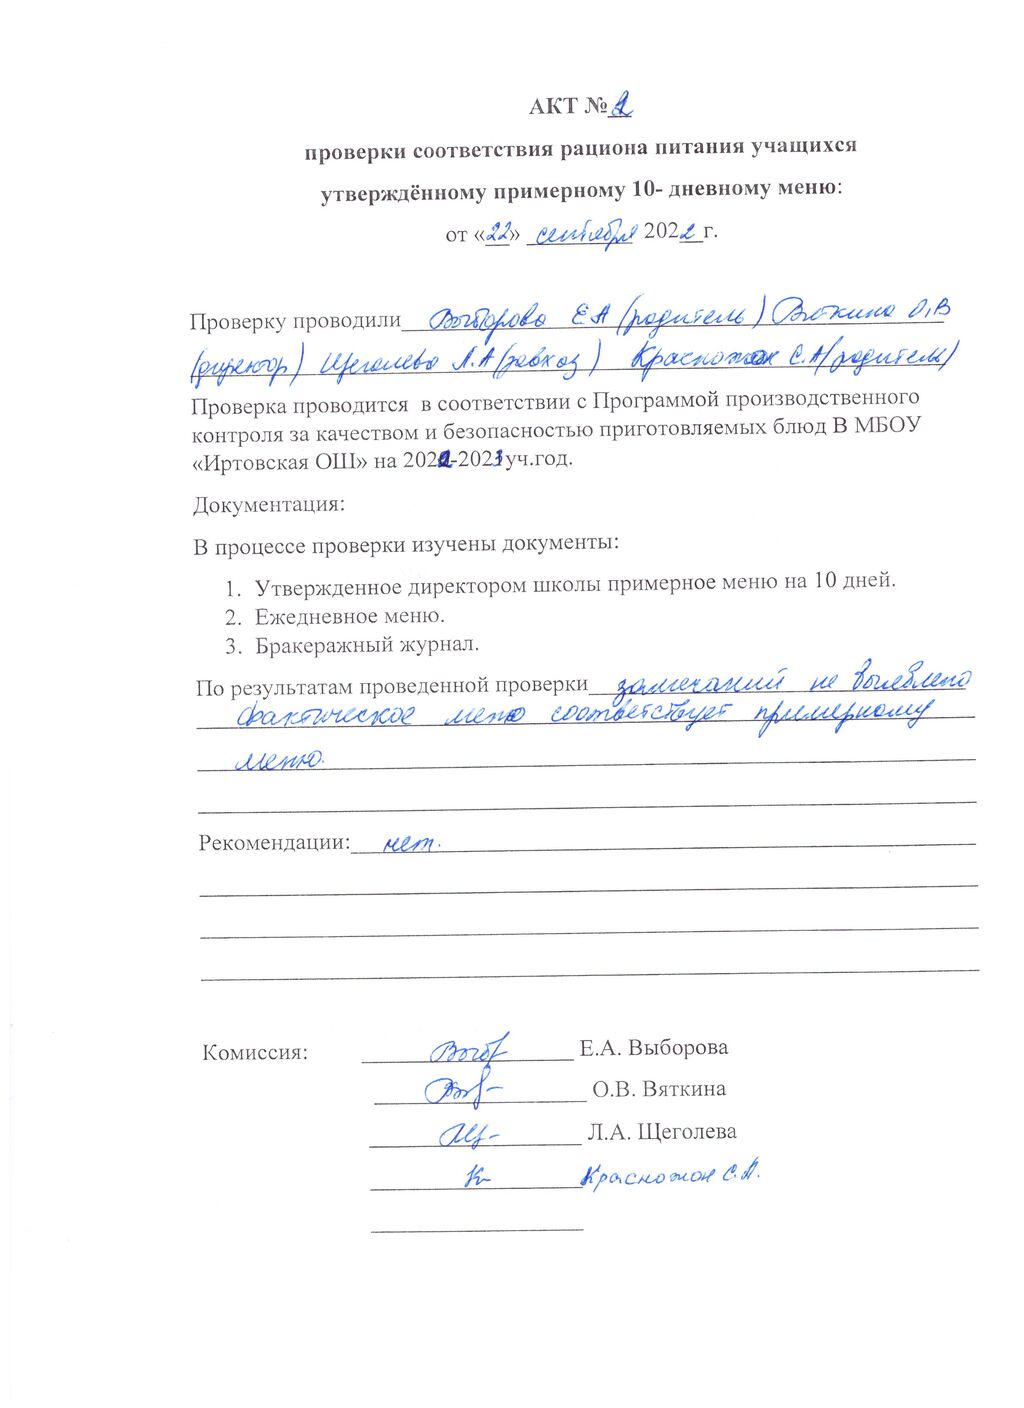 АКТ №
проверки соответствия рациона питания учащихся
утверждённому примерному 10- дневному меню:
от «22» сентября 2022 г.
Проверку проводили Выборова Е А (родитель) Вяткина О,В
(директор) Щеголева Л.А (завхоз) Красножон С.А (родитель)
Проверка проводится в соответствии с Программой производственного
контроля за качеством и безопасностью приготовляемых блюд В МБОУ
«Иртовская ОШ» на 2022-2023 уч.год.
Документация:
В процессе проверки изучены документы:
1. Утвержденное директором школы примерное меню на 10 дней.
2. Ежедневное меню.
3. Бракеражный журнал.
По результатам проведенной проверки замечаний не выявлено
Фактическое меню соответствует примерному
меню.
Рекомендации: нет.
Комиссия: Выб Е.А. Выборова
О.В. Вяткина
Щ- Л.А. Щеголева
К Красножон С.А.